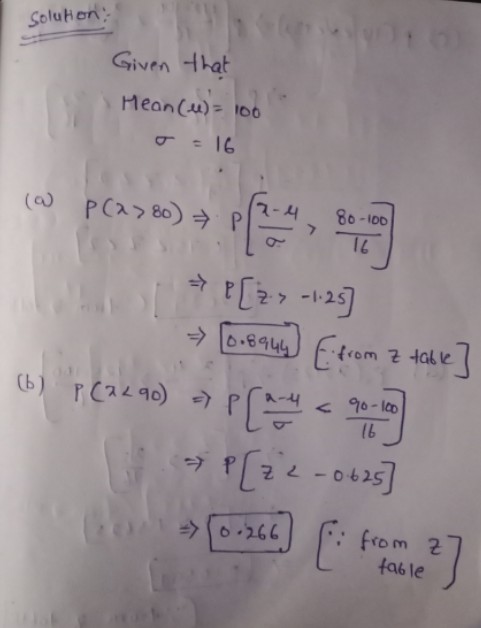 Solution:-
Given that
Mean(μ) = 100
σ = 16
(a) P(x > 80) ⇒ P[x-μ/σ > 80-100/16]
⇒ P[z > -1.25]
⇒ 0.8944 [∵ from z table]
(b) P(x < 90) ⇒ P[x-μ/σ < 90-100/16]
⇒ P[z < -0.625]
⇒ 0.266 [∵ from z
table]